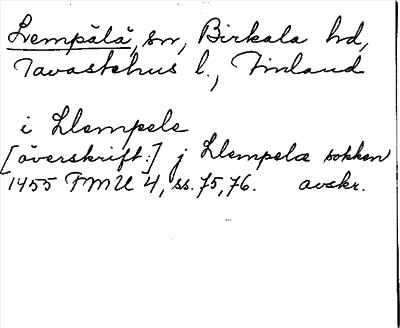 Lempälä, sn, Birkala hd,
Tavastehus l., Finland
i Llempele
[överskrift:] j Llempelæ sokken
1455 FMU 4, ss. 75, 76. avskr.